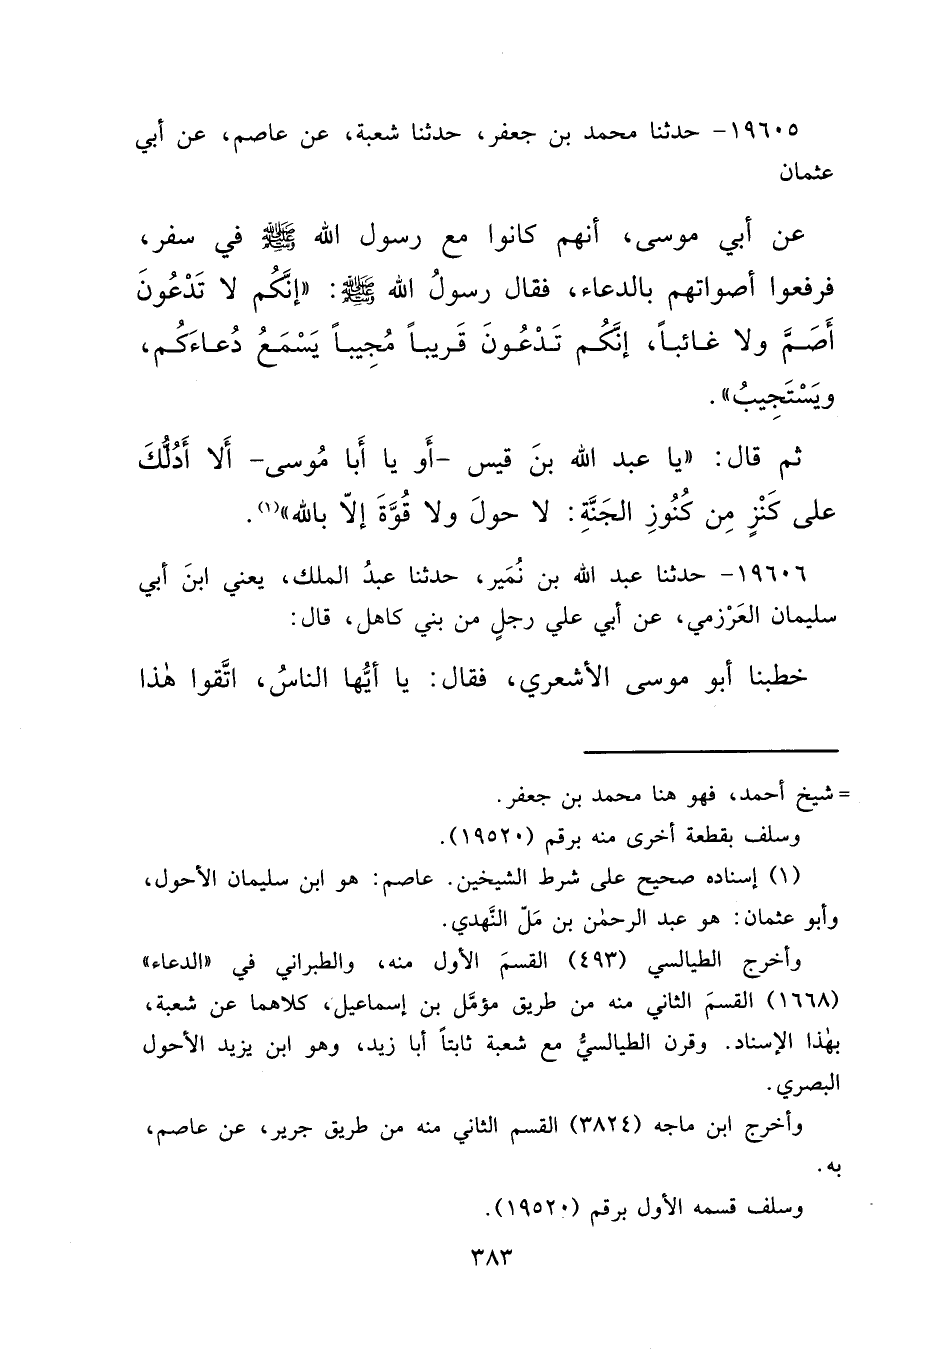 ١٩٦٠٥- حدثنا محمد بن جعفر، حدثنا شعبة، عن عاصم، عن أبي
عثمان
عن أبي موسى، أنهم كانوا مع رسول الله ﷺ في سفر،
فرفعوا أصواتهم بالدعاء، فقال رسولُ الله ﷺ: «إنَّكُم لا تَدْعُونَ
أَصَـمَّ ولا غـائبـاً، إنَّكُـم تَـدْعُـونَ قَـريبـاً مُجِيبـاً يَسْمَـعُ دُعـاءَكُـم،
ويَسْتَجِيبُ».
ثم قال: «يا عبد الله بنَ قيس -أَو يا أَبا مُوسى- أَلا أَدُلُّكَ
على كَنْزٍ مِن كُنُوزِ الجَنَّةِ: لا حولَ ولا قُوَّةَ إلّا بالله»(١).
١٩٦٠٦- حدثنا عبد الله بن نُمَير، حدثنا عبدُ الملك، يعني ابنَ أبي
سليمان العَرْزمي، عن أبي علي رجلٍ من بني كاهل، قال:
خطبنا أبو موسى الأشعري، فقال: يا أيُّها الناسُ، اتَّقوا هٰذا
= شيخ أحمد، فهو هنا محمد بن جعفر.
وسلف بقطعة أخرى منه برقم (١٩٥٢٠).
(١) إسناده صحيح على شرط الشيخين. عاصم: هو ابن سليمان الأحول،
وأبو عثمان: هو عبد الرحمٰن بن مَلّ النَّهدي.
وأخرج الطيالسي (٤٩٣) القسمَ الأول منه، والطبراني في «الدعاء»
(١٦٦٨) القسمَ الثاني منه من طريق مؤمَّل بن إسماعيل، كلاهما عن شعبة،
بهٰذا الإسناد. وقرن الطيالسيُّ مع شعبة ثابتاً أبا زيد، وهو ابن يزيد الأحول
البصري.
وأخرج ابن ماجه (٣٨٢٤) القسم الثاني منه من طريق جرير، عن عاصم،
به.
وسلف قسمه الأول برقم (١٩٥٢٠).
٣٨٣